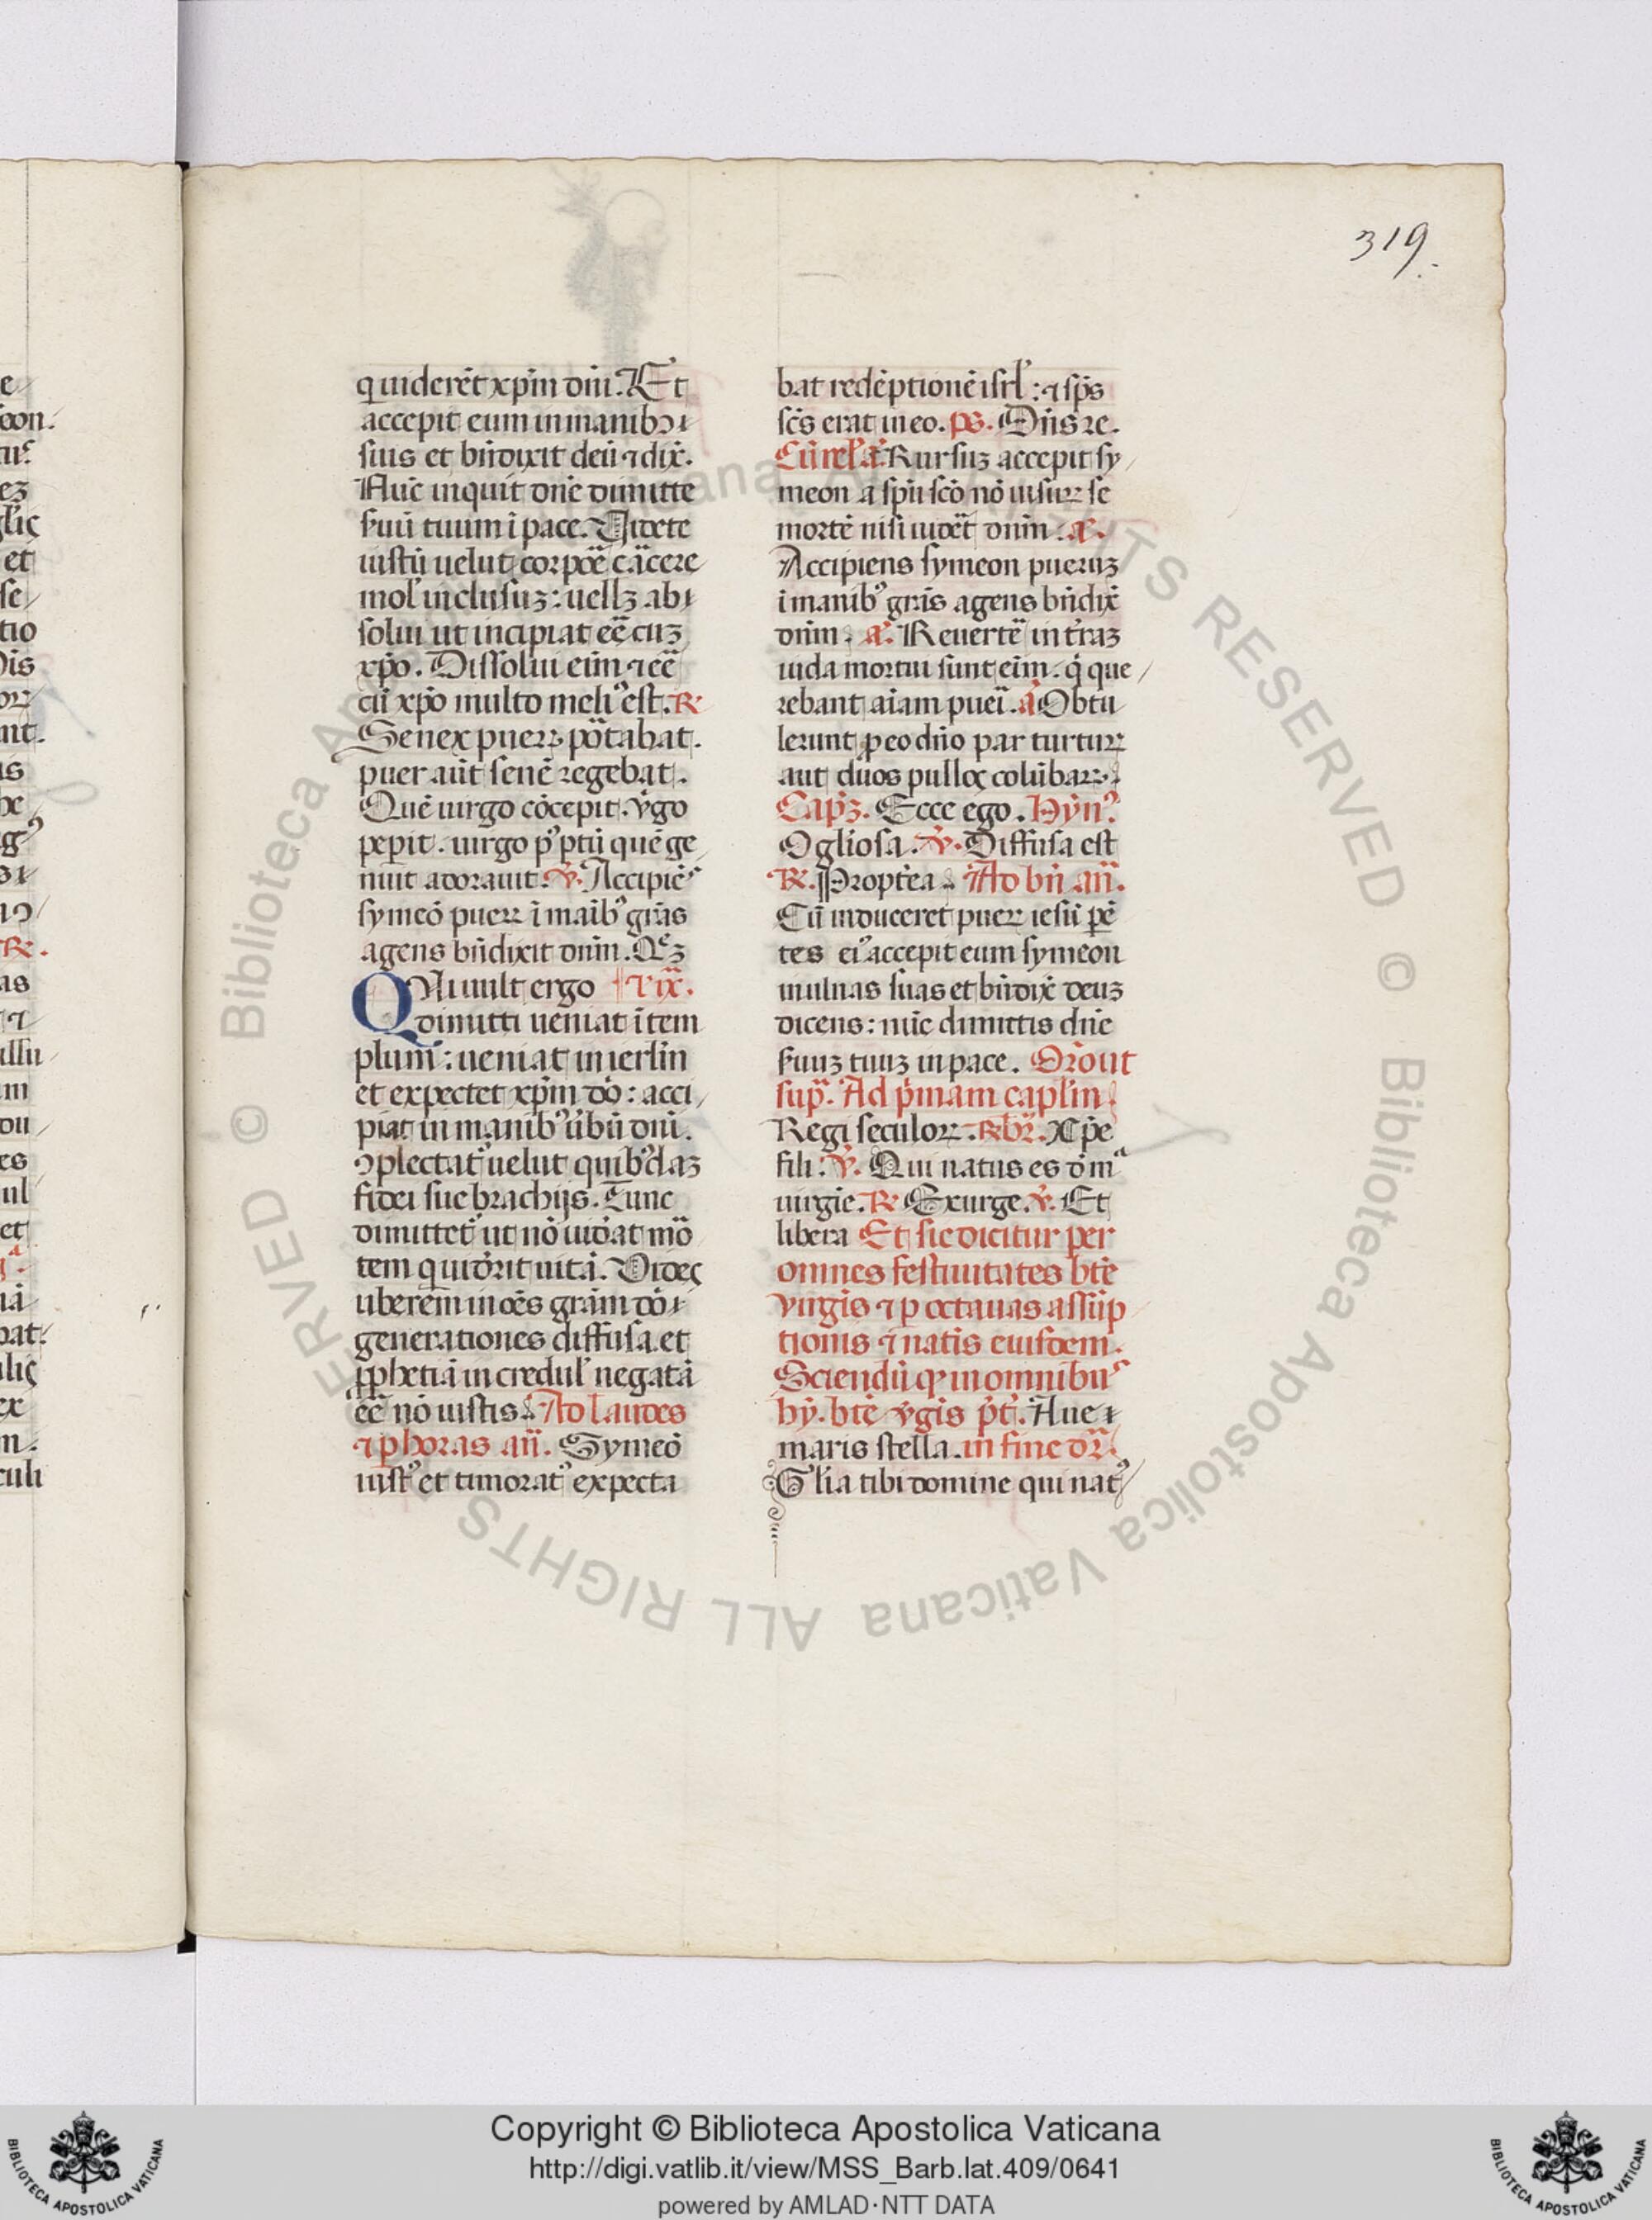 319.
q̇ uiderēt xp̄m dn̄i. Et
accepit eum in manibꝫ
suis et bn̄dixit deū ⁊ dix̄.
Nūc inquit dn̄e dimitte
ẜuū tuum ī pace. Videte
iustū uelut corpoē cācere
mol' inclusuꝫ: uellꝫ ab
solui ut incipiat eē̄ cuꝫ
xp̄o. Dissolui eīm ⁊ eē̄
cū xp̄o multo meliꝰ est. R̶
Senex pueꝝ poꝛtabat.
puer aūt senē regebat.
Quē uirgo cōcepit. v̇go
peperit. uirgo pꝰ ptū quē ge
nuit adorauit. v̇. Accipiēs
symeō pueꝝ ī maibꝰ grās
agens bn̄dixit dn̄m. Qꝫ
QUi uult ergo ⁊ ix̄.
dimitti ueniat ī tem
plum: ueniat in ierlm̄
et expectet xp̄m dō: acci
piat in manibꝰ ūbū dn̄i.
ꝯplectatꝰ uelut quibꝰdaꝫ
fidei sue brachijs. Tunc
dimittetꝰ ut nō uid̄at mō
tem q̇ uid̄it uitā. Videꝭ
uberem̄ in oēs grām dō
generationes diffusa et
ꝓphetiā in credul' negatā
eē̄ nō iustis. Ad laudes
⁊ ꝑ horas an̄. Symeō
iustꝰ et timoratꝰ expecta
bat redēptionē isrl': ⁊ sp̄s
sc̄s erat in eo. ps̄. Dn̄s re.
Cū rel' a̅. Rursuꝫ accepit sy
meon a spū scō nō uisuꝝ se
mortē nisi uidēt dn̄m. a̅.
Accipiens symeon pueruꝫ
ī manibꝰ grās agens bn̄dix̄
dn̄m. a̅. Reuertē in t̄raꝫ
iuda mortui sunt eīm. q̇ que
rebant aīam pueī. a̅ Obtu
lerunt ꝓ eo dn̄o par turtuꝝ
aut duos pulloꝭ colūbaꝝ.
Cap̄ꝫ. Ecce ego. Hȳnꝰ.
O gl'iosa. v̇. Diffusa est
R̶. Propt̄ea. Ad bn̄ an̄.
Cū induceret pueꝝ iesū ꝑē
tes eiꝰ accepit eum symeon
in ulnas suas et bn̄dix̄ deuꝫ
dicens: nūc dimittis dn̄e
ẜuuꝫ tuuꝫ in pace. Or̄o ut
sup̄. Ad p̄mam capl'm
Regi seculoꝝ. R̶ br̄. Xp̄e
fili. v̇. Qui natus es d̄ mᵃ
uirgīe. R̶ Exurge. v̇. Et
libera Et sic dicitur per
omnes festiuitates bt̄e
virgīs ⁊ ꝑ octauas assūp
tionis ⁊ natīs eiusdem.
Sciendū ꝙ in omnibuˢ
hȳ. bt̄e v̇gīs p̄t̄. Aue
maris stella. in fine dr̄.
Gl'ia tibi domine qui natꝰ
Copyright © Biblioteca Apostolica Vaticana
http://digi.vatlib.it/view/MSS_Barb.lat.409/0641
powered by AMLAD·NTT DATA